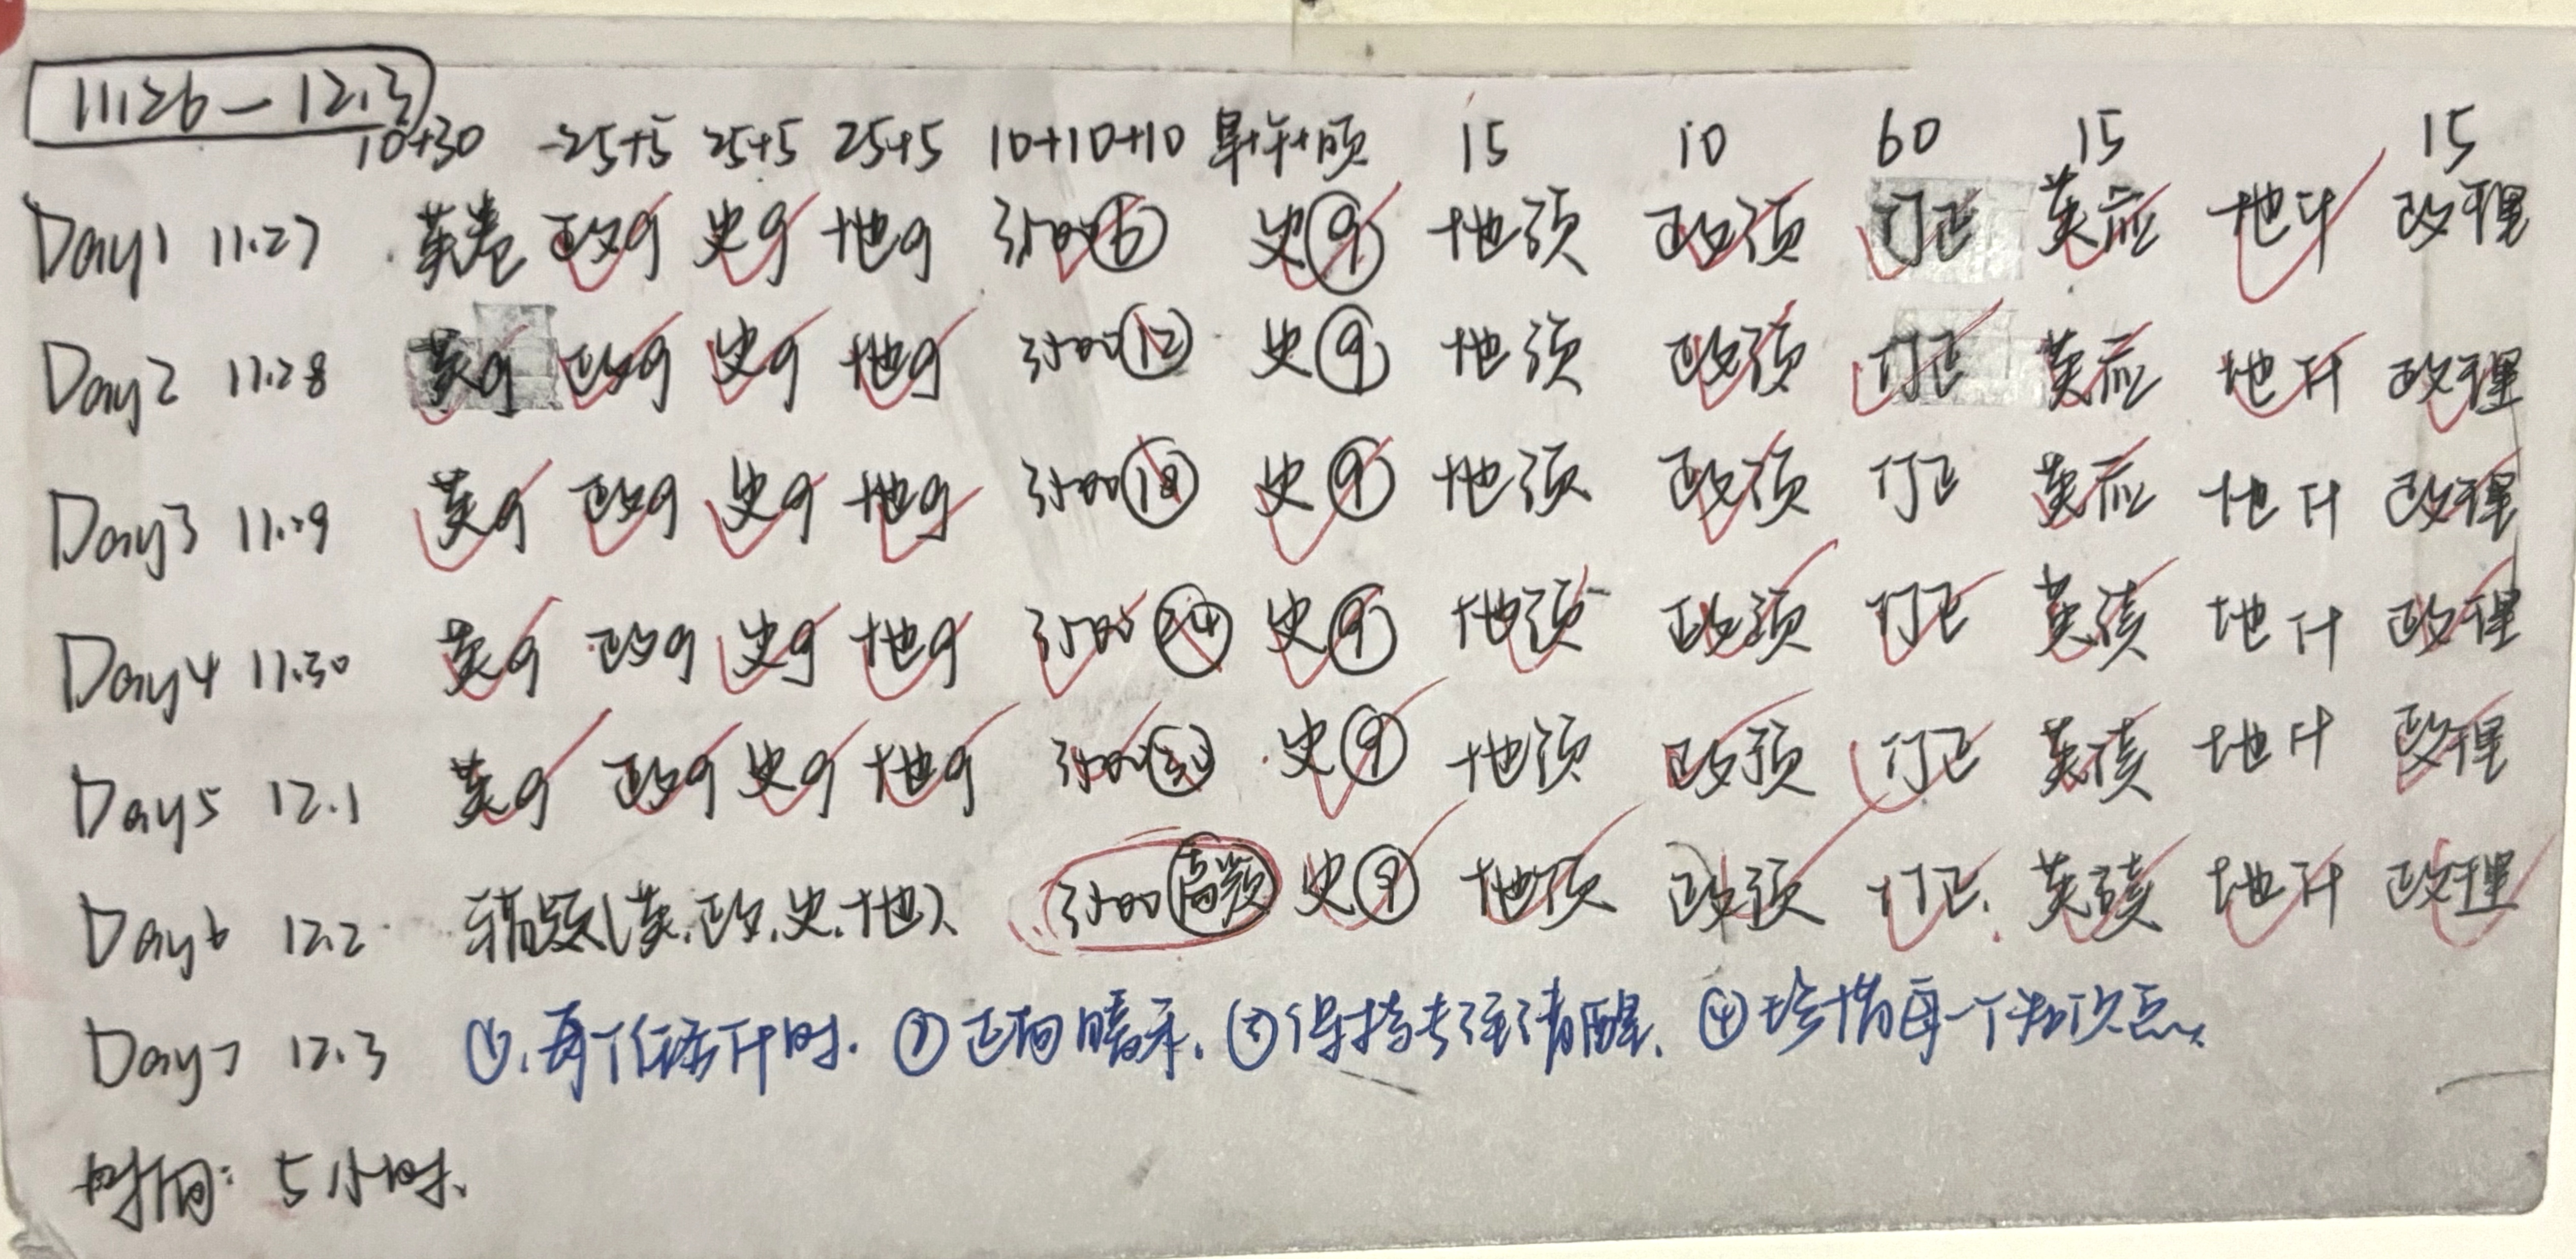 11.26-12.3
10+30 25+5 25+5 25+5 10+10+10 早+午+顷 15 10 60 15 15
Day1 11.27 英卷 政9 史9 地9 3500⑥ 史⑨ 地须 政须 订正 英应 地计 政理
Day2 11.28 英9 政9 史9 地9 3500⑫ 史⑨ 地须 政须 订正 英应 地计 政理
Day3 11.29 英9 政9 史9 地9 3500⑱ 史⑨ 地须 政须 订正 英应 地计 政理
Day4 11.30 英9 政9 史9 地9 3500㉔ 史⑨ 地须 政须 订正 英读 地计 政理
Day5 12.1 英9 政9 史9 地9 3500 史⑨ 地须 政须 订正 英读 地计 政理
Day6 12.2 (英.政.史.地) 3500高频 史⑨ 地须 政须 订正. 英读 地计 政理
Day7 12.3 ①.每个任务计时. ②正向暗示. ③保持专注清醒. ④珍惜每一个知识点.
时间: 5小时.